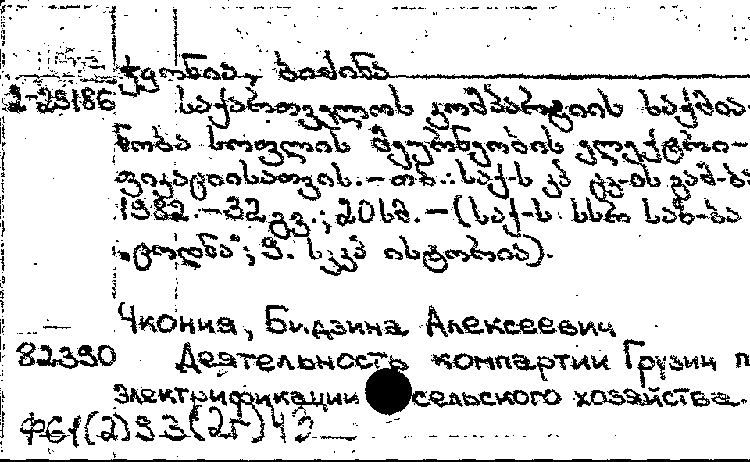 ჭყონია, ბიძინა
2-29186 საქართველოს კომპარტიის საქმია-
ნობა სოფლის მეურნეობის ელექტრი-
ფიკაციისათვის. — თბ.: საქ-ს კპ ცკ-ის გამ-ბა
1982. — 32 გვ.; 20 სმ. — (საქ-ს სსრ საზ-ბა
„ცოდნა“; ს. სკკპ ისტორია).
Чкония, Бидзина Алексеевич
82390 Деятельность компартии Грузии п
электрификации сельского хозяйства.